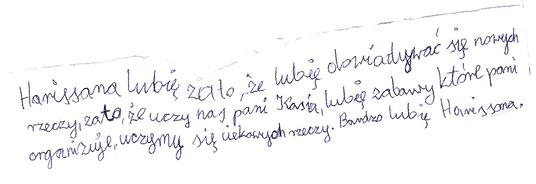 Harissana lubię zato, że lubię dowiadywać się nowych
rzeczy, zato, że uczy nas pani Kasia, lubię zabawy które pani
organizuje, uczymy się ciekawych rzeczy. Bardzo lubię Harissona.